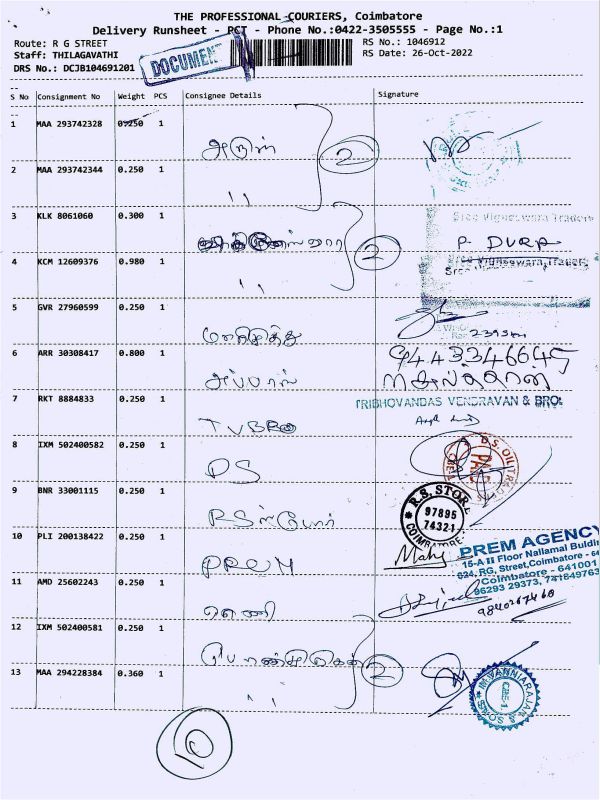 THE PROFESSIONAL COURIERS, Coimbatore
Delivery Runsheet - PCT - Phone No.:0422-3505555 - Page No.:1
Route: R G STREET
RS No.: 1046912
Staff: THILAGAVATHI
RS Date: 26-Oct-2022
DRS No.: DCJB104691201
DOCUMENT
S No Consignment No Weight PCS Consignee Details Signature
1 MAA 293742328 0.250 1
அருள் 2
2 MAA 293742344 0.250 1
,,
3 KLK 8061060 0.300 1
Sree Vigneswara Traders
2 P. DURA
4 KCM 12609376 0.980 1
Sree Vigneswara Traders
,,
5 GVR 27960599 0.250 1
6 ARR 30308417 0.800 1
9443346645
அப்பாஸ்
7 RKT 8884833 0.250 1
TRIBHOVANDAS VENDRAVAN & BRO
TVBRO
8 IXM 502400582 0.250 1
D.S. OIL TRADERS
DS
9 BNR 33001115 0.250 1
R.S. STORE
97895
74321
COIMBATORE
RS ஸ்டோர்
10 PLI 200138422 0.250 1
PREM AGENCY
15-A II Floor Nallamai Buldin
624, RG, Street, Coimbatore - 64
Coimbatore - 641001
96293 29373, 741649763
PREM
11 AMD 25602243 0.250 1
9840267468
12 IXM 502400581 0.250 1
2
13 MAA 294228384 0.360 1
M.VANNIARAJAN & SONS
CBE-1
,,
10